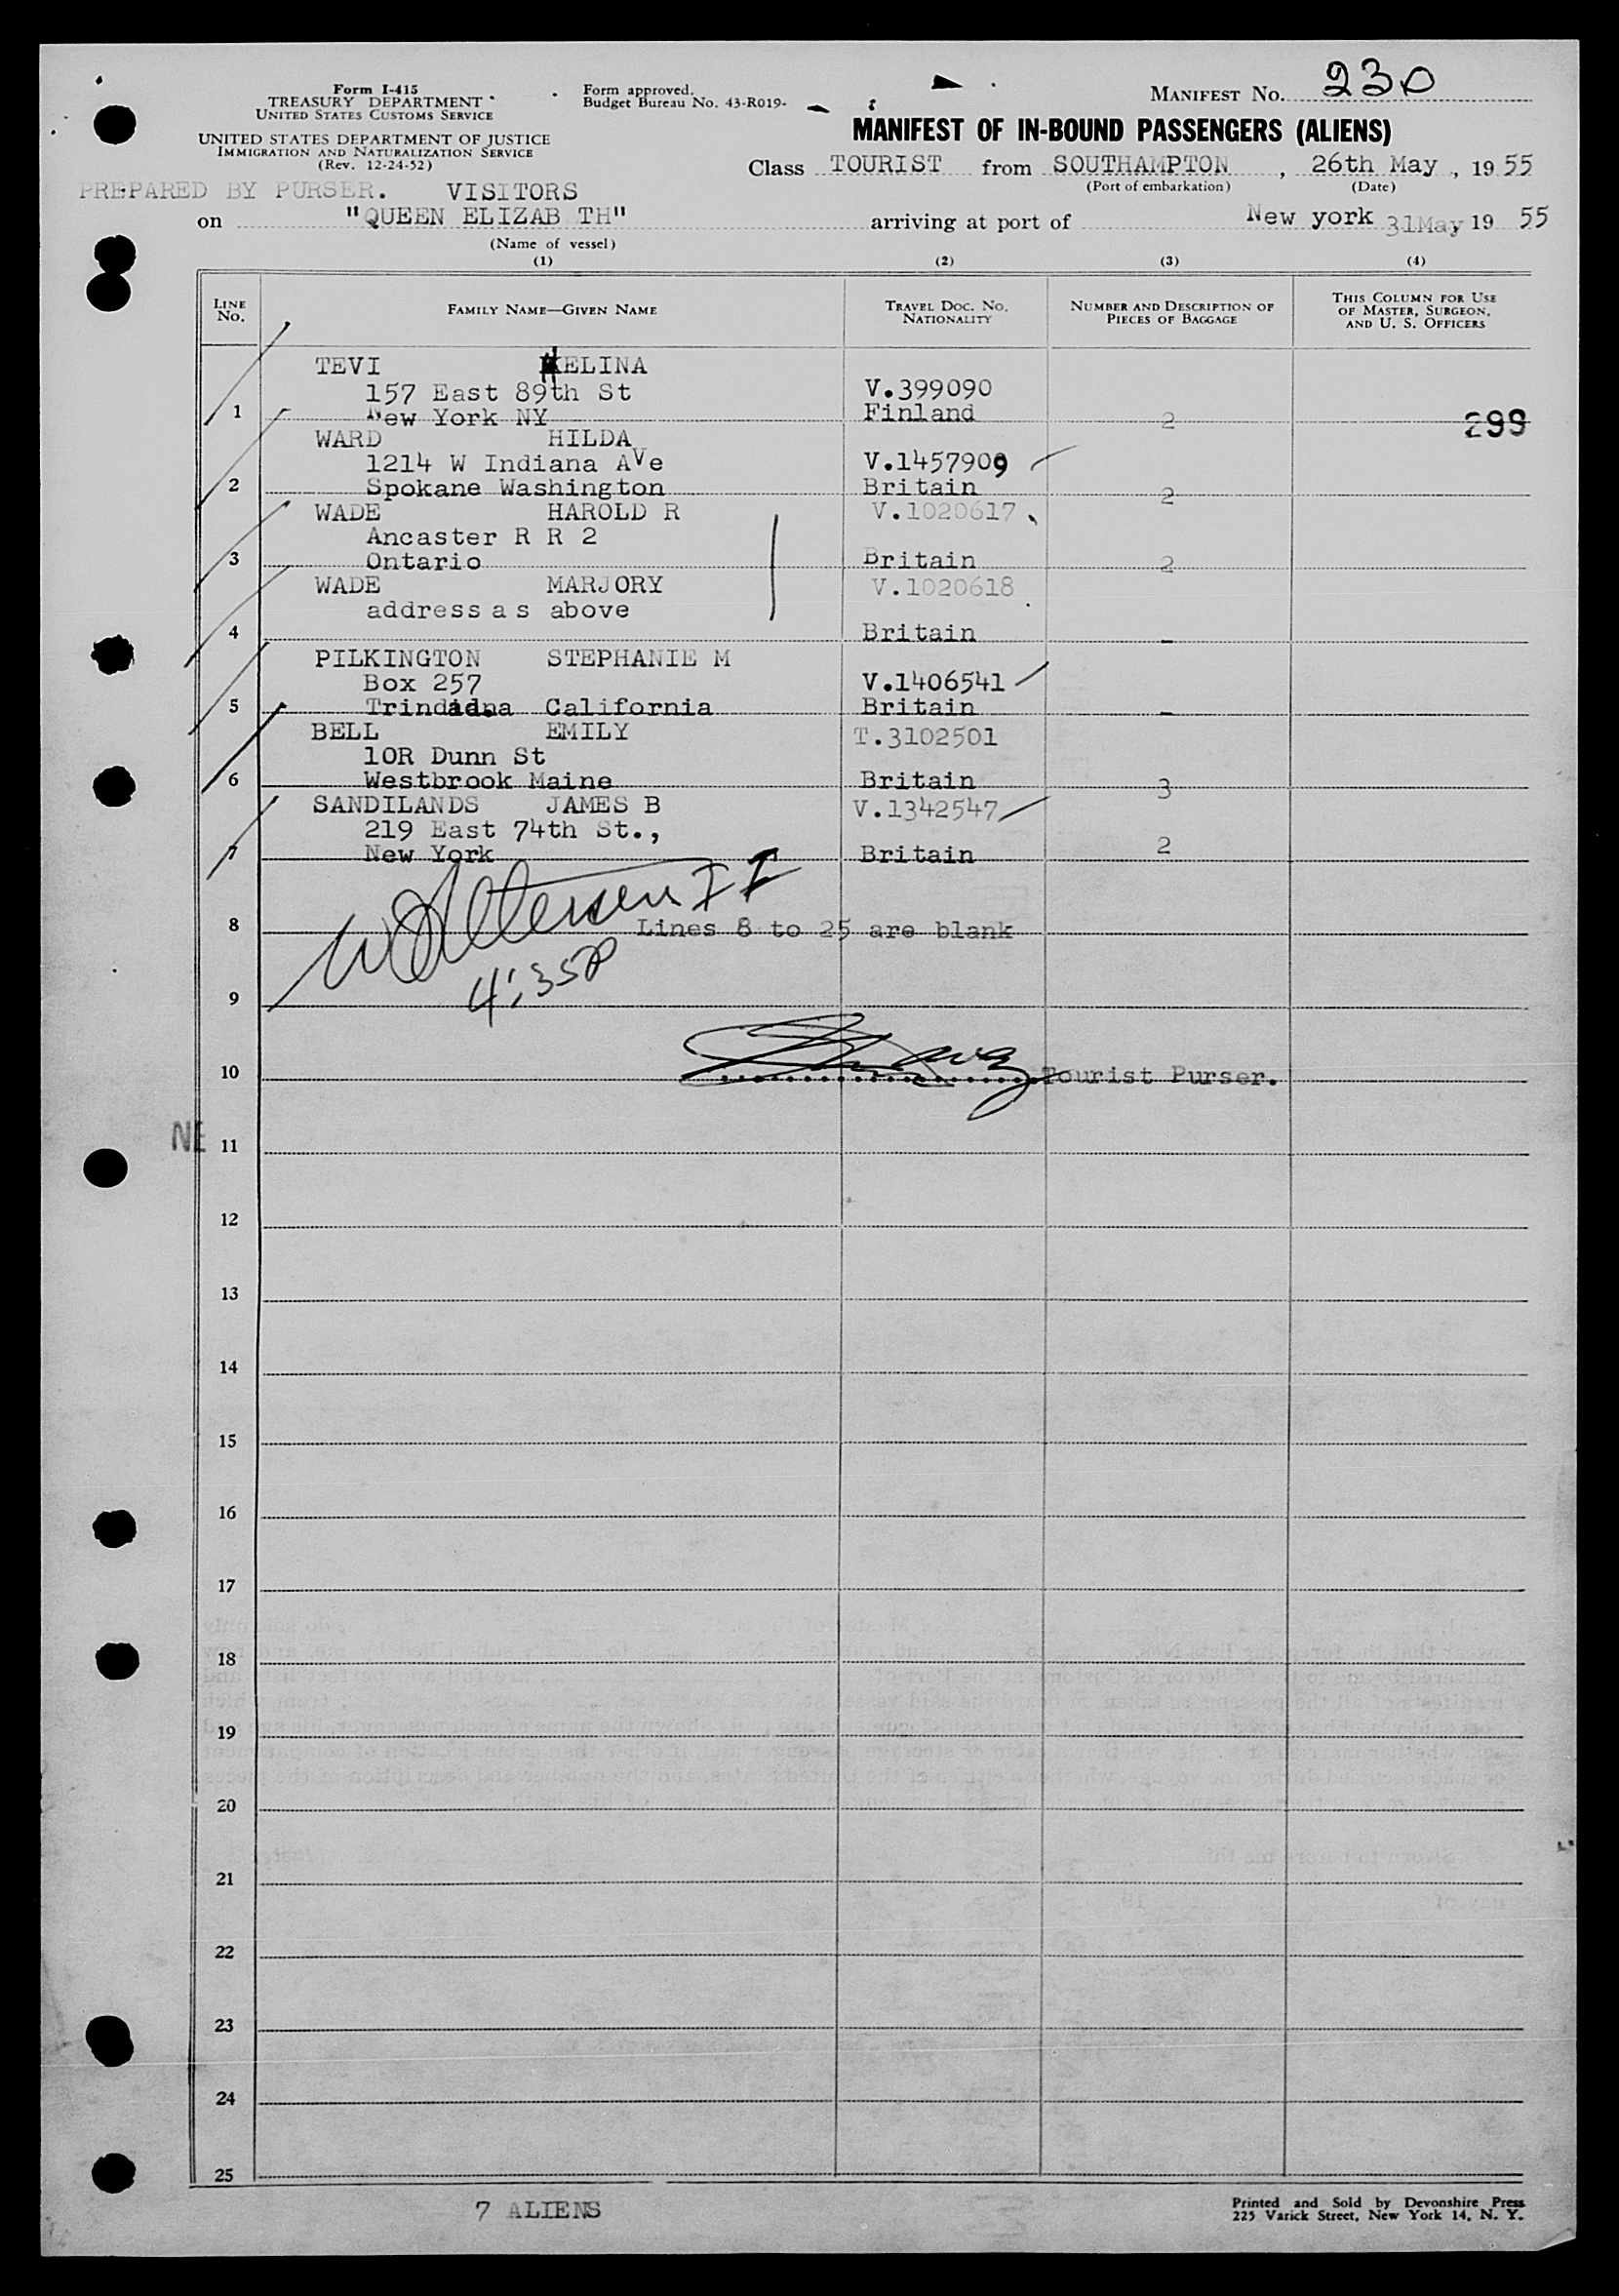 Form I-415
TREASURY DEPARTMENT
UNITED STATES CUSTOMS SERVICE
UNITED STATES DEPARTMENT OF JUSTICE
IMMIGRATION AND NATURALIZATION SERVICE
(Rev. 12-24-52)
Form approved.
Budget Bureau No. 43-R019-
MANIFEST NO. 230
MANIFEST OF IN-BOUND PASSENGERS (ALIENS)
Class TOURIST from SOUTHAMPTON, 26th May, 1955
(Port of embarkation) (Date)
PREPARED BY PURSER. VISITORS
on "QUEEN ELIZAB TH" arriving at port of New york 31May 1955
(Name of vessel)
(1) (2) (3) (4)
LINE NO.
FAMILY NAME—GIVEN NAME
TRAVEL DOC. NO. NATIONALITY
NUMBER AND DESCRIPTION OF PIECES OF BAGGAGE
THIS COLUMN FOR USE OF MASTER, SURGEON, AND U. S. OFFICERS
TEVI HELINA
157 East 89th St V.399090
1 New York NY Finland 2 299
WARD HILDA
1214 W Indiana AVe V.1457909
2 Spokane Washington Britain 2
WADE HAROLD R V.1020617
Ancaster R R 2
3 Ontario Britain 2
WADE MARJORY V.1020618
address as above
4 Britain -
PILKINGTON STEPHANIE M
Box 257 V.1406541
5 California Britain -
BELL EMILY T.3102501
10R Dunn St
6 Westbrook Maine Britain 3
SANDILANDS JAMES B V.1342547
219 East 74th St.,
7 New York Britain 2
8 Lines 8 to 25 are blank
4:35P
9
10 Tourist Purser.
NE
11
12
13
14
15
16
17
18
19
20
21
22
23
24
25
7 ALIENS
Printed and Sold by Devonshire Press
225 Varick Street, New York 14, N. Y.